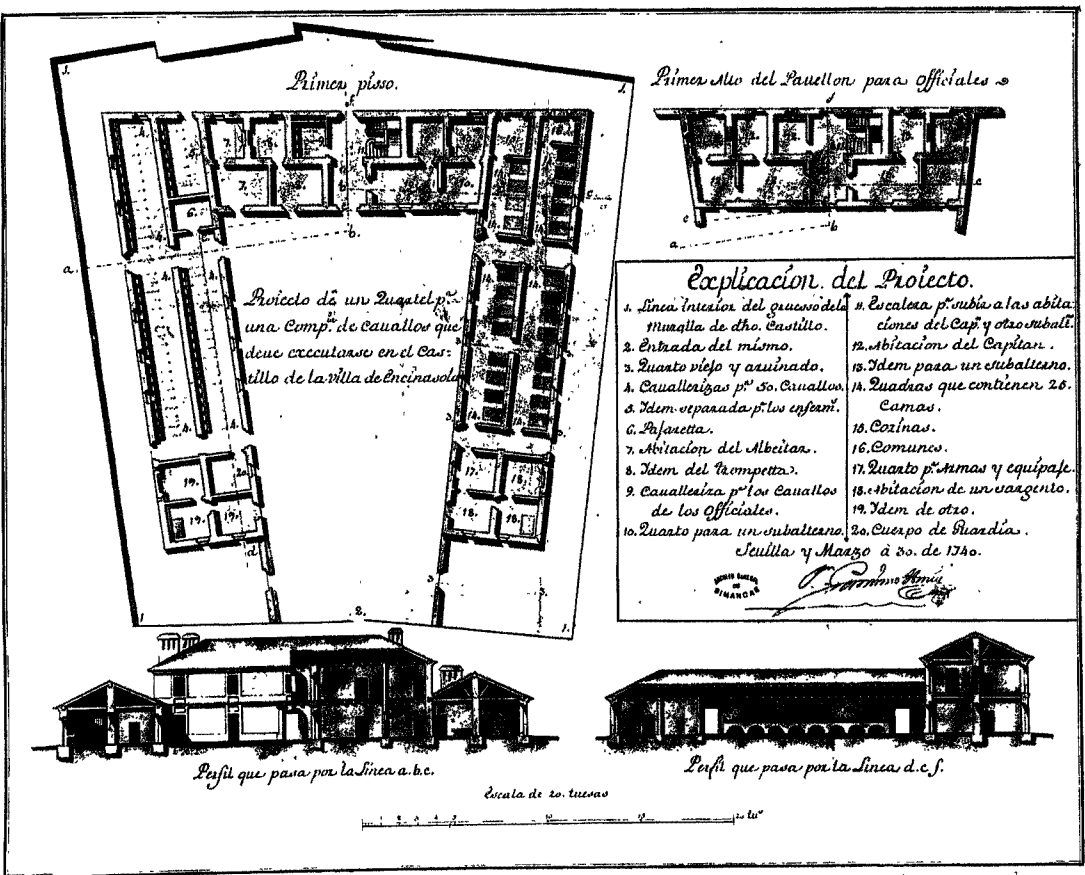 Primer pisso.
Proiecto de un Quartel pa.
una Compa. de Cauallos que
deue executarse en el Cas-
tillo de la villa de Encinasola
Primer Alto del Pauellon para Officiales
Explicacion del Proiecto.
1. Linea Interior del gruesso dela
Muralla de dho. Castillo.
2. Entrada del mismo.
3. Quarto viejo y arruinado.
4. Cauallerizas pa. 50. Cauallos.
5. Idem separada pa. los enferm.
6. Pajaretta.
7. Abitacion del Albeitar.
8. Idem del Trompetta.
9. Caualleriza pa. los Cauallos
de los Officiales.
10. Quarto para un subalterno.
11. Escalera pa. subir a las abita
ciones del Capn. y otro subalt.
12. Abitacion del Capitan.
13. Idem para un subalterno.
14. Quadras que contienen 26.
Camas.
15. Cozinas.
16. Comunes.
17. Quarto pa. Armas y equipaje.
18. Abitacion de un sargento.
19. Idem de otro.
20. Cuerpo de Guardia.
Seuilla y Marzo à 30. de 1740.
ARCHIVO GENERAL
DE
SIMANCAS
Perfil que pasa por la Linea a.b.c.
Perfil que pasa por la Linea d.e.f.
Escala de 20. tuesas